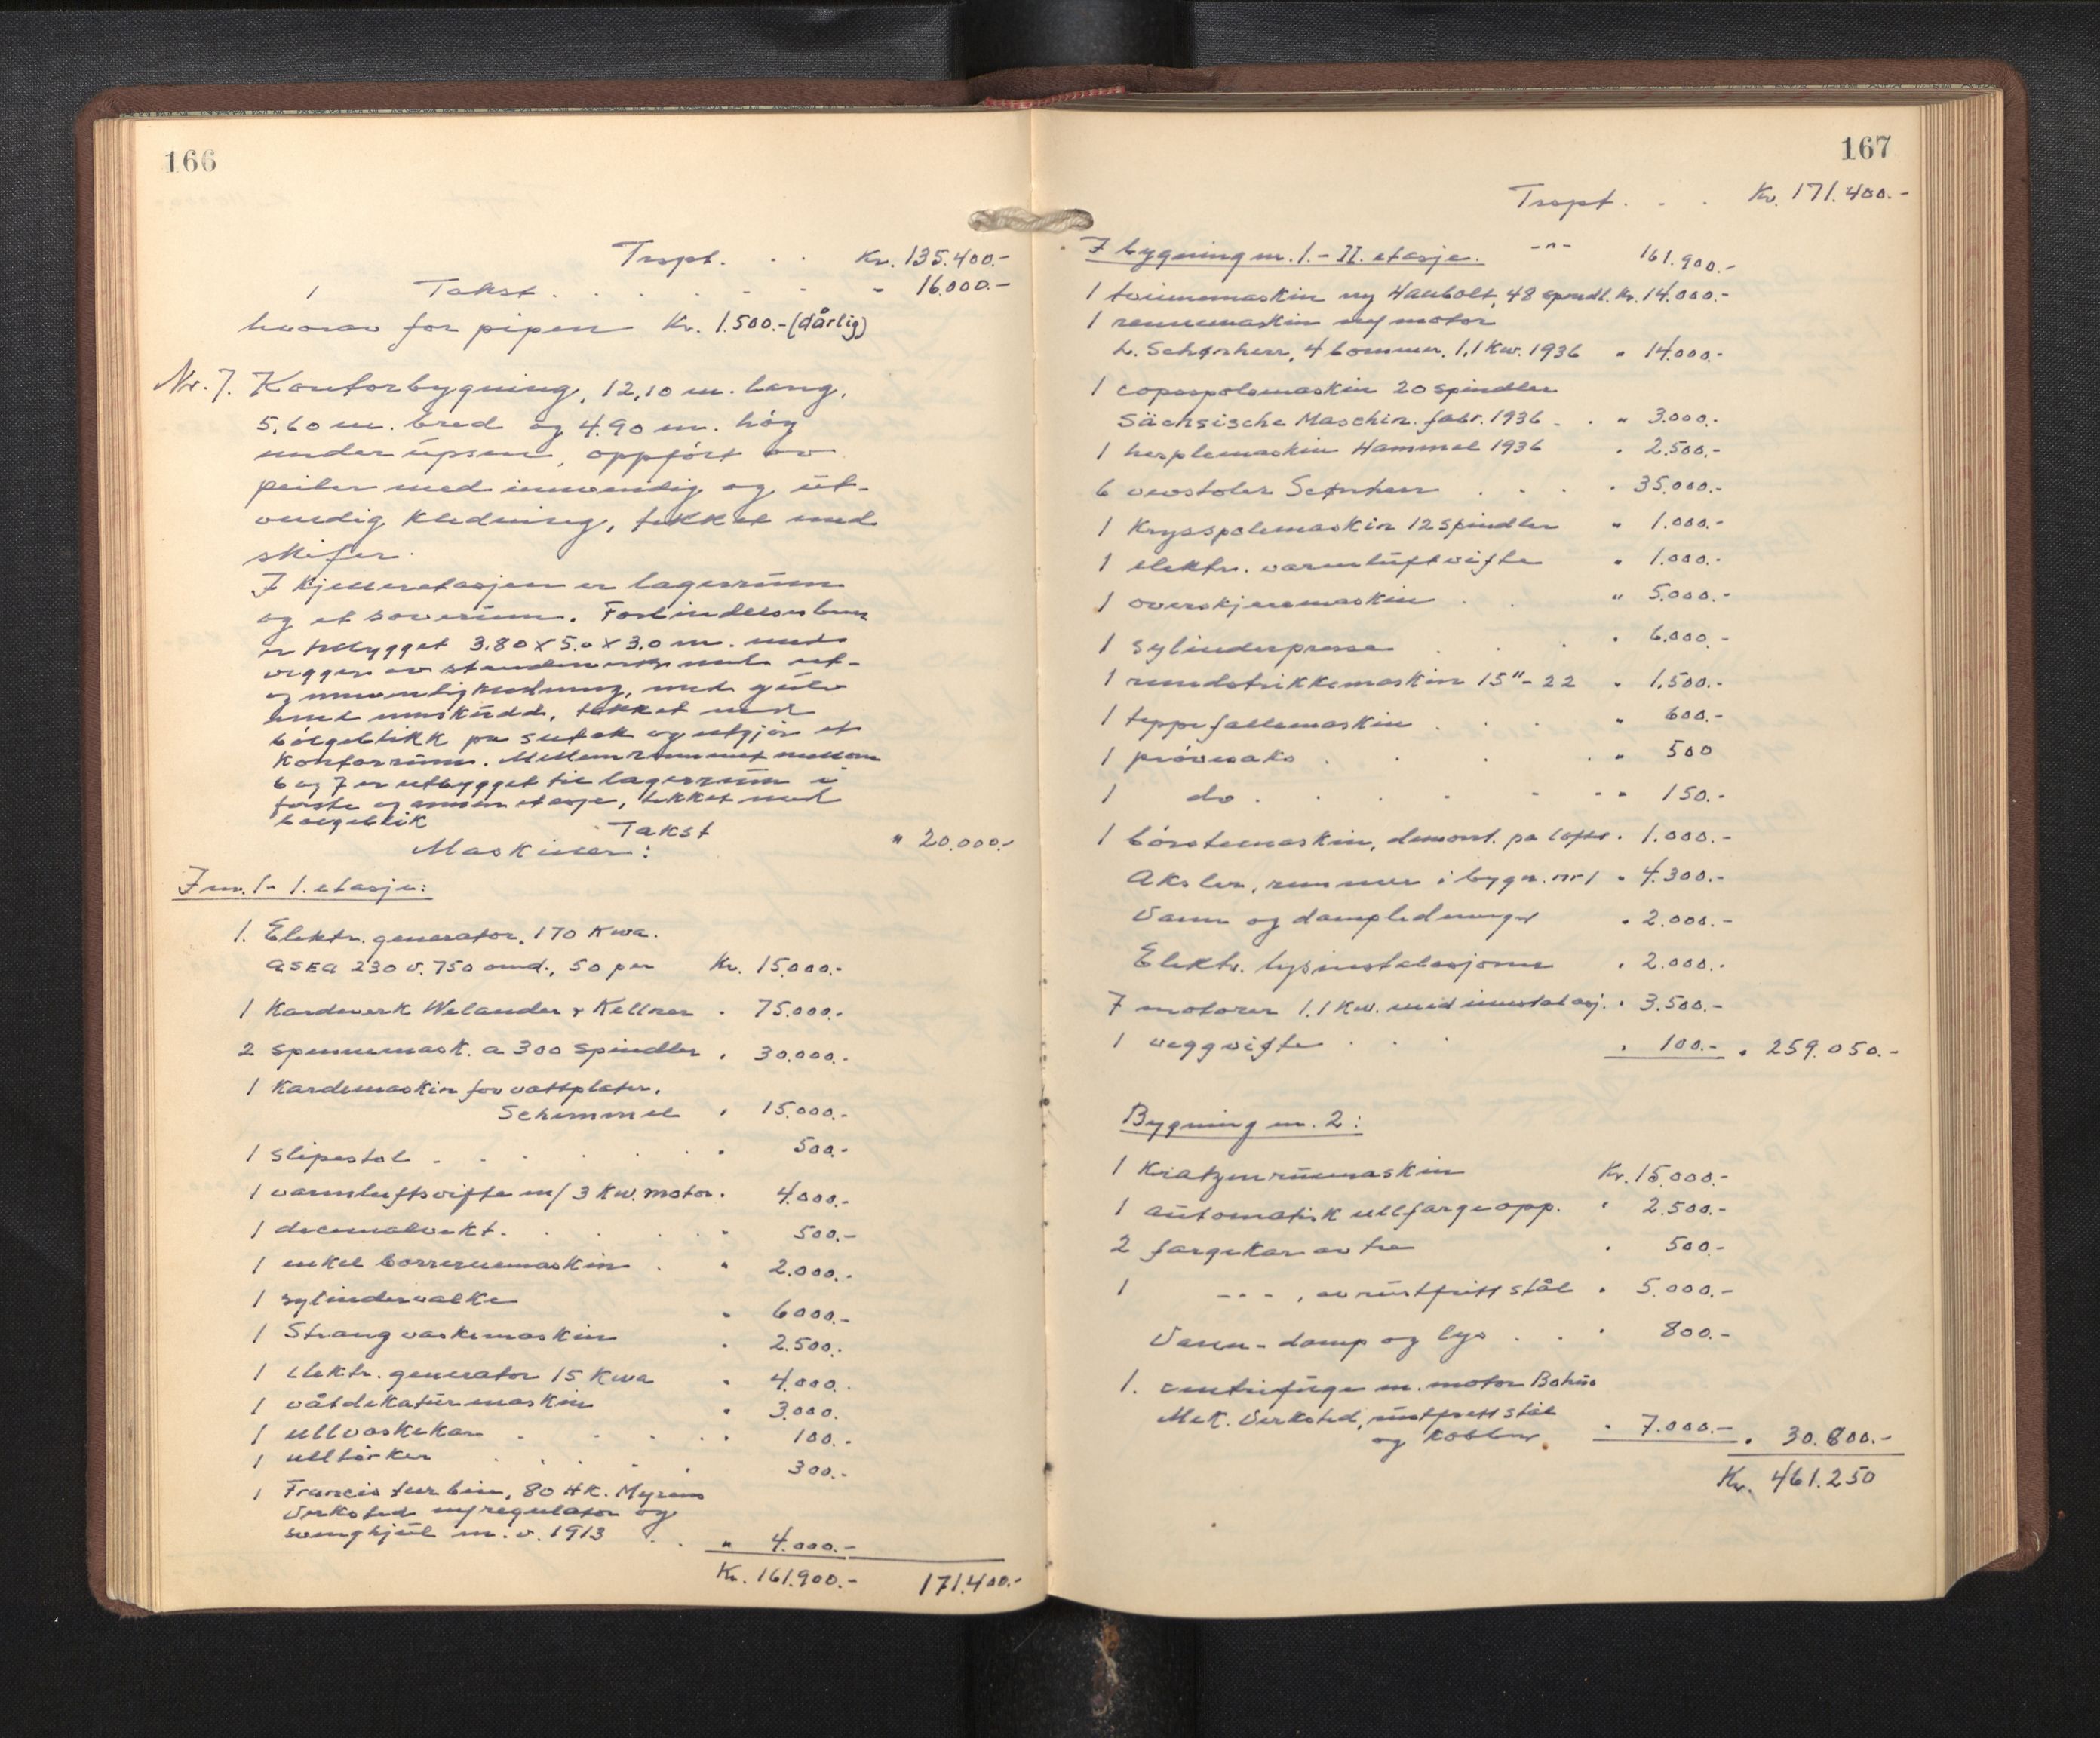 166
Trspt. . . Kr. 135.400.-
1 Takst. . . . . . " 16.000.-
hvorav for pipen Kr. 1.500.- (dårlig)
Nr. 7. Kontorbygning, 12,10 m. lang,
5,60 m. bred og 4.90 m. høy
under upsen, oppført av
peiler med innvendig og ut-
vendig kledning, tekket med
skifer.
I kjelleretasjen er lagerrum
og et soverum. Forbindelses
er tilbygget 3.80 x 5.0 x 3.0 m. med
vegger av stenderverk med ut-
og innvendig kledning, med gulv
tekket med
bølgeblikk på sutak og utgjør et
Kontorrum. Mellemrummet mellom
6 og 7 er utbygget til lagerrum i
første og annen etasje, tekket med
bølgeblik
Takst " 20.000.-
Maskiner:
I nr. 1 - 1. etasje:
1. Elektr. generator, 170 Kwa.
ASEA 230 v. 750 omd., 50 per Kr. 15.000.-
1 Kardeverk Welander & Kellner " 75.000.-
2 spinnemask. a 300 spindler " 30.000.-
1 Kardemaskin for vattplater.
Schimmel " 15.000.-
1 slipestol - . . . . . " 500.-
1 varmluftsvifte m/ 3 Kw. motor. 4.000.-
1 decimalvekt. . . . . " 500.-
1 enkel borreruemaskin . " 2.000.-
1 sylindervalke " 6000.-
1 Strangvaskemaskin " 2.500.-
1 elektr. generator 15 Kwa " 4.000.
1 våtdekaturmaskin " 3.000.
1 ullvaskekar . . . . " 100.-
1 ulltørker . . . . " 300.-
1 Francis turbin, 80 HK. Myrens
Verksted m/regulator og
svinghjul m. v. 1913 . . " 4.000.-
Kr. 161.900.- 171.400.-
167
Trspt. . . Kr. 171.400.-
I bygning nr. 1. - II. etasje. -"- 161.900.-
1 tvinnemaskin ny Haubolt, 48 spindl. Kr. 14.000.-
1 rennemaskin m/motor
L. Schønherr, 4 bommer, 1,1 Kw. 1936 " 14.000.-
1 copsspolemaskin 20 spindler
Sächsische Maschin. fabr. 1936 . . " 3.000.-
1 hesplemaskin Hammel 1936 " 2.500.-
6 vevstoler Scønherr . . . " 35.000.-
1 Krysspolemaskin 12 spindler " 1.000.-
1 elektr. varmluftvifte " 1.000.-
1 overskjæremaskin . . " 5.000.-
1 sylinderpresse . . " 6.000.-
1 rundstrikkemaskin 15" - 22 " 1.500.-
1 teppefallemaskin . . . " 600.-
1 prøvesaks . . . " 500
1 do . . . . . " 150.-
1 børstemaskin, demont. på loftet " 1.000.-
Aksler, remmer i bygn. nr 1 " 4.300.-
Vann og dampledninger " 2.000.-
Elektr. lysinstalasjoner " 2.000.-
7 motorer 1.1 Kw. med innstalasj. " 3.500.-
1 veggvifte . . . " 100.- " 259.050.-
Bygning nr. 2:
1 Kratzenruemaskin Kr. 15.000.-
1 automatisk ullfargeapp. " 2.500.-
2 fargekar av tre " 500.-
1 -"- , av rustfritt stål " 5.000.-
Vann - damp og lys . . . 800.-
1. centrifuge m. motor Bohus
Mek. Verksted, rustfritt stål
og kobber. " 7.000.- " 30.800.-
Kr. 461.250